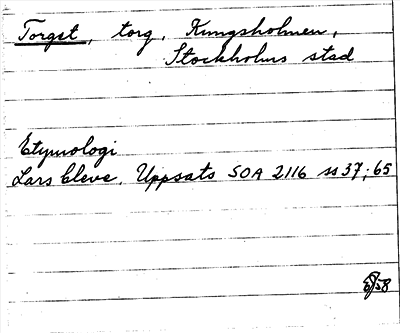 Torget, torg, Kungsholmen,
Stockholms stad
Etymologi
Lars Cleve, Uppsats SOA 2116 ss 37; 65
58